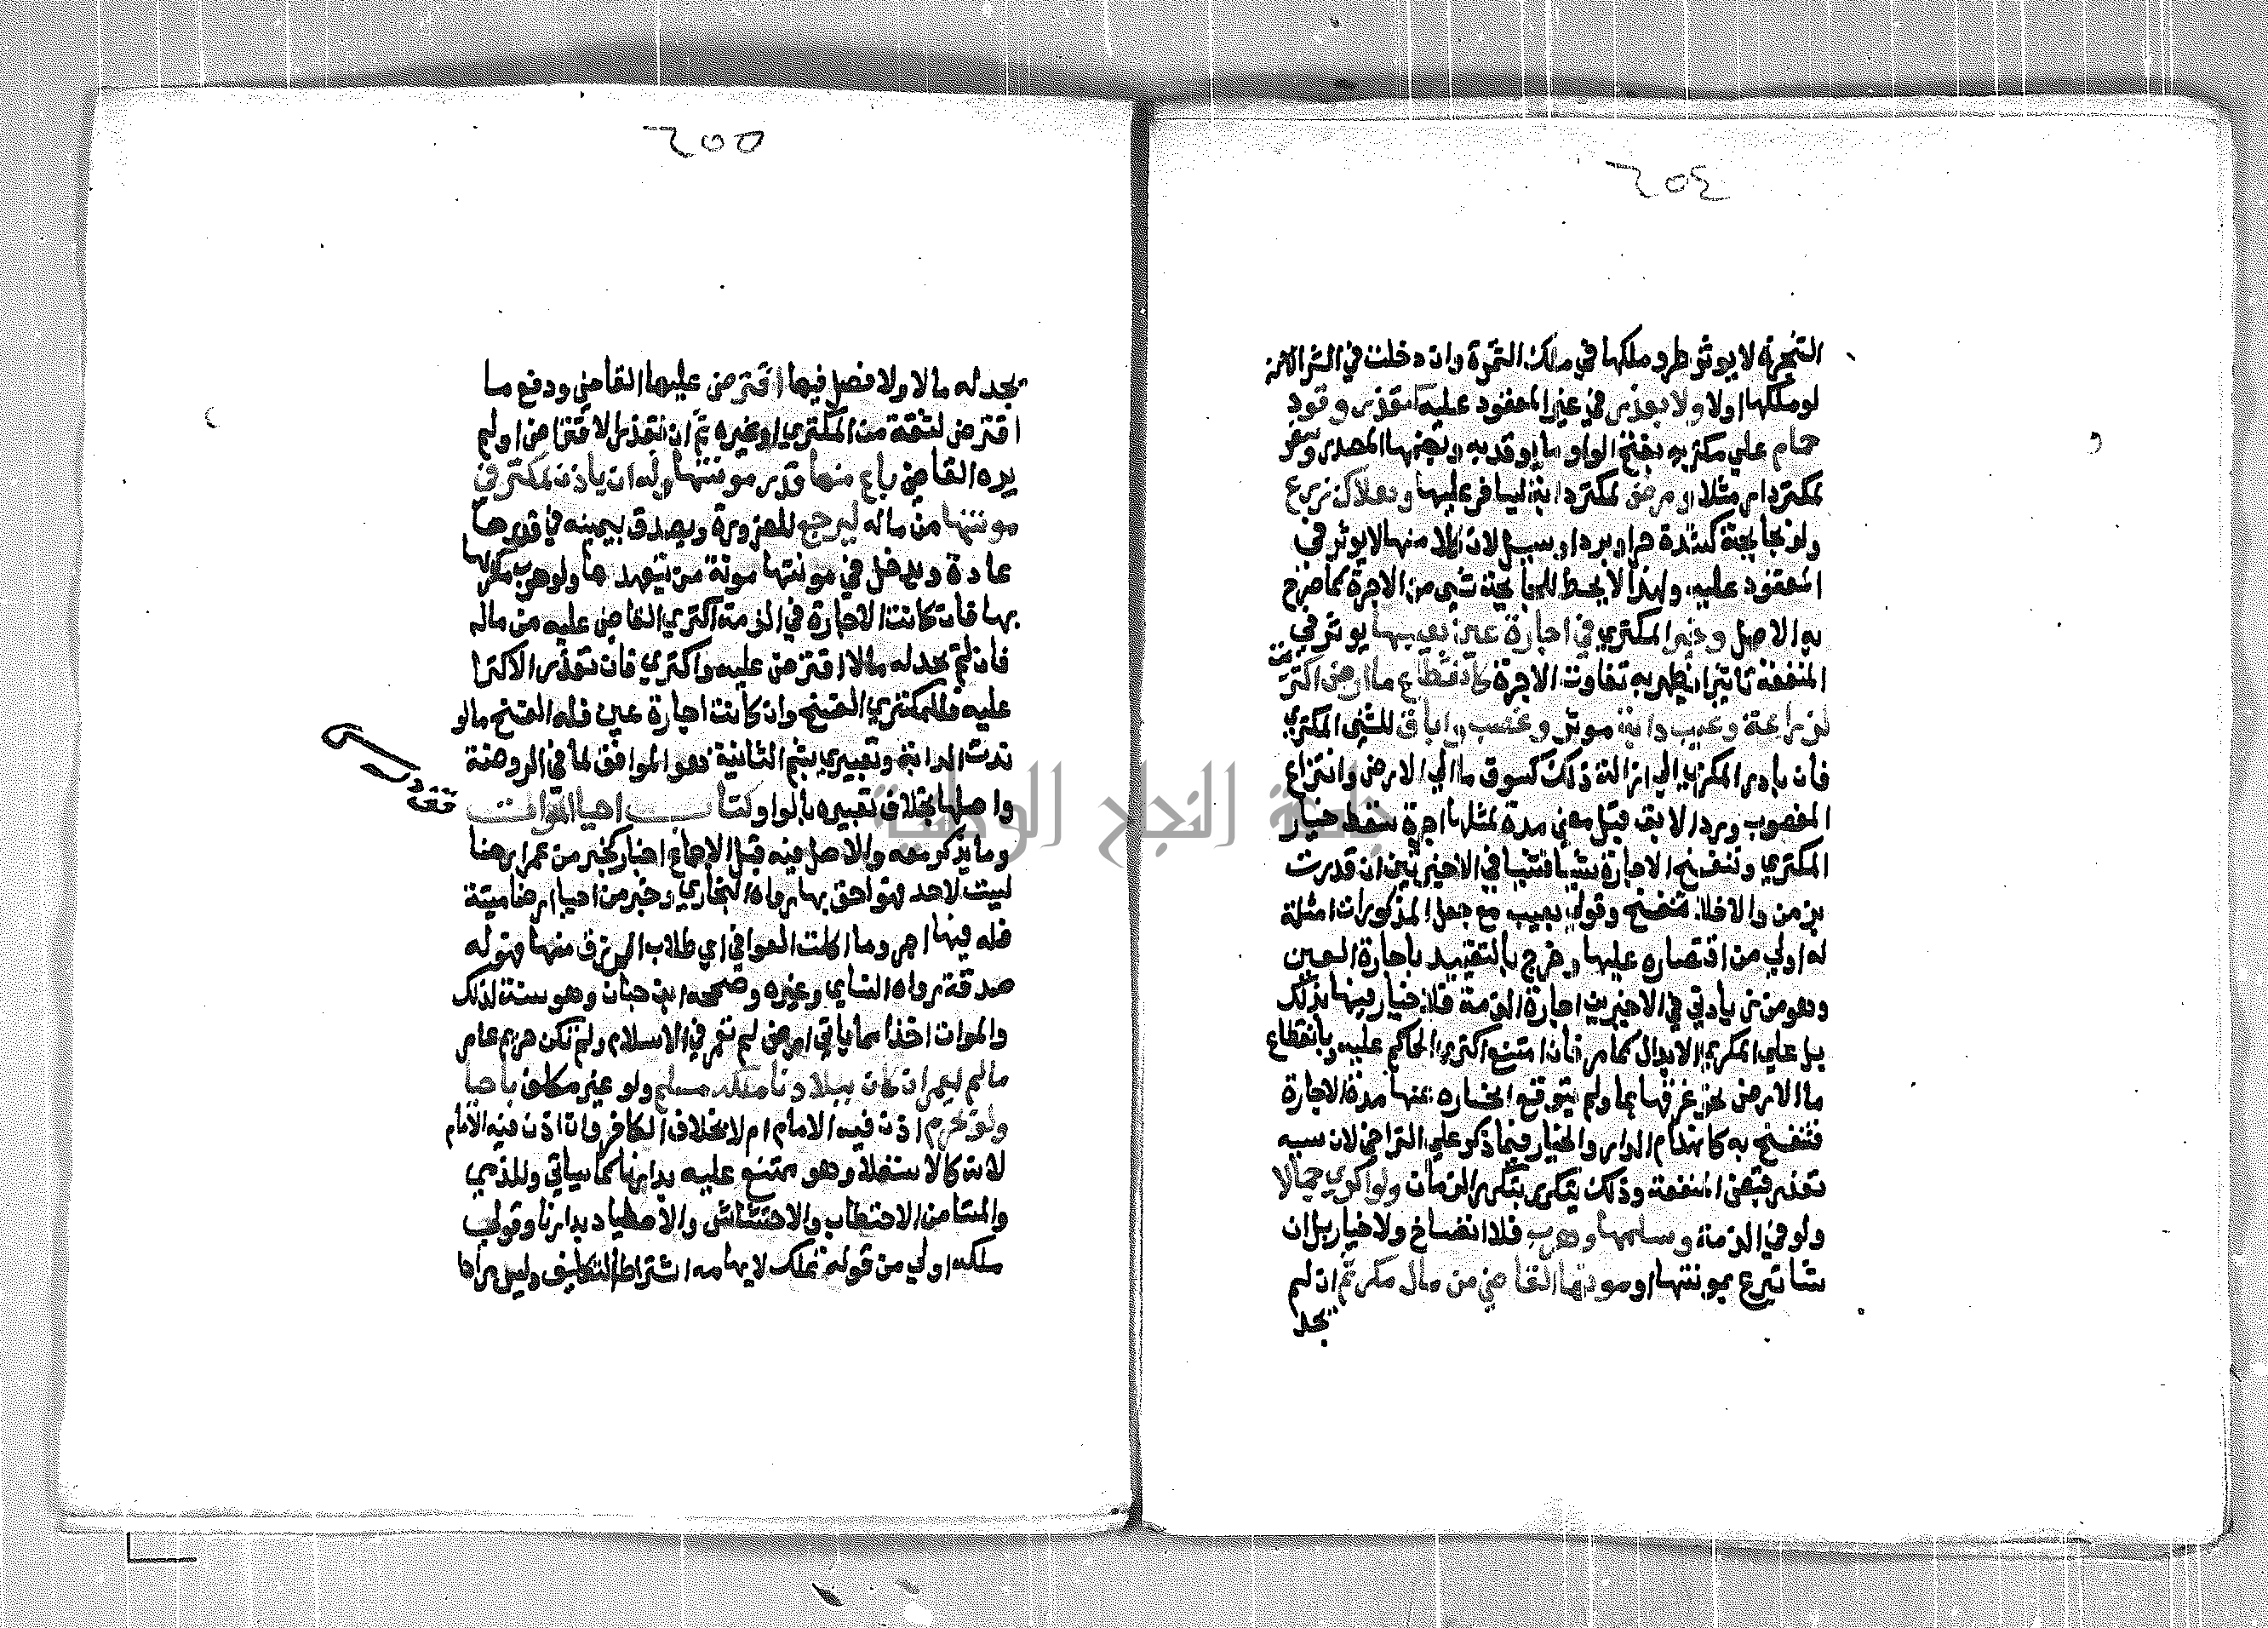 ٢٥٤
الشجرة لا يوثر طرو ملكها في ملك الثمرة وان دخلت في الشرا لانه
لو ملكها اولا ولا بعذر في غير المعقود عليه كتعذر وقود
حمام علي مكتر به بفتح الواو ما يوقد به وبضمها المصدر وسفر
لمكتر دار مثلا ومرض لمكتر دابة ليسافر عليها وهلاك زرع
ولو بجايحة كشدة حر او برد او سيل لان كلا منها لا يوثر في
المعقود عليه ولهذا لا يحط للجايحة شي من الاجرة كما صرح
به الاصل وخير المكتري في اجارة عين بعيبها يوثر في
المنفعة تاثيرا يظهر به تفاوت الاجرة كانقطاع ما ارض اكتريت
لزراعة وعيب دابة موثر وغصب واباق للشي المكتري
فان بادر المكري الي ازالة ذلك كسوق ما الي الارض وانتزاع
المغصوب ورد الابق قبل مضي مدة لمثلها اجرة سقط خيار
المكتري وتنفسخ الاجارة شيا فشيا في الاخيرين ان قدرت
بزمن والا فلا تنفسخ وقولي بعيب مع جعل المذكورات امثلة
له اولي من اقتصاره عليها وخرج بالتقييد باجارة العين
وهو من زيادتي في الاخيرين اجارة الذمة فلا خيار فيها بذلك
بل علي المكري الابدال كما مر فان امتنع اكتري الحاكم عليه وبانقطاع
ما الارض نحو غرقها بما ولم يتوقع انحساره عنها مدة الاجارة
فتنفسخ به كانهدام الدار والخيار فيما ذكر علي التراخي لان سببه
تعذر قبض المنفعة وذلك يتكرر بتكرر الزمان ولو اكري جمالا
ولو في الذمة وسلمها وهرب فلا انفساخ ولا خيار بل ان
شا تبرع بمونتها او مونها القاضي من مال مكر ثم ان لم
يجد
٢٥٥
يجد له مالا ولا فضل فيها اقترض عليها القاضي ودفع ما
اقترض لثقة من المكتري او غيره ثم ان تعذر الاقتراض او لم
يره القاضي باع منها قدر مونتها وله ان ياذن لمكتر في
مونتها من ماله ليرجع للضرورة ويصدق بيمينه في قدرها
عادة ويدخل في مونتها مونة من يتعهدها ولو هرب مكريها
بها فان كانت الاجارة في الذمة اكتري القاضي عليه من ماله
فان لم يجد له مالا اقترض عليه واكتري فان تعذر الاكترا
عليه فللمكتري الفسخ وان كانت اجارة عين فله الفسخ كما لو
ندت الدابة وتعبيري بثم الثانية هو الموافق لما في الروضة
واصلها بخلاف تعبيره بالواو كتاب احيا الموات
وما يذكر معه والاصل فيه قبل الاجماع اخبار كخبر من عمر ارضا
ليست لاحد فهو احق بها رواه البخاري وخبر من احيا ارضا ميتة
فله فيها اجر وما اكلت العوافي اي طلاب الرزق منها فهو له
صدقة رواه النساي وغيره وصححه ابن حبان وهو سنة لذلك
والموات اخذا مما ياتي ارض لم تعمر في الاسلام ولم تكن حريم عامر
ما لم يعمر ان كان ببلادنا ملكه مسلم ولو غير مكلف باحيا
ولو بحرم اذن فيه الامام ام لا بخلاف الكافر وان اذن فيه الامام
لانه كالاستعلا وهو ممتنع عليه بدارنا كما سياتي وللذمي
والمستامن الاحتطاب والاحتشاش والاصطياد بدارنا وقولي
ملكه اولي من قوله تملك لايهامه اشتراط التكليف وليس مرادا